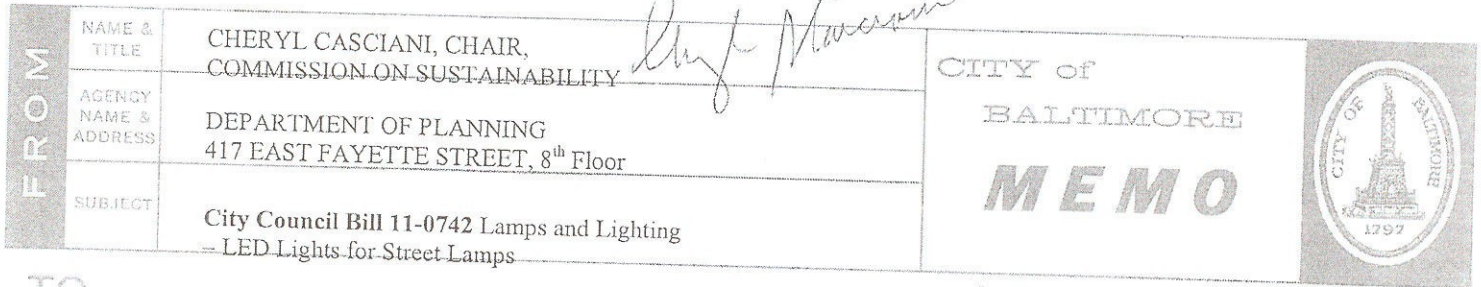 FROM
NAME &
TITLE
CHERYL CASCIANI, CHAIR,
COMMISSION ON SUSTAINABILITY
AGENCY
NAME &
ADDRESS
DEPARTMENT OF PLANNING
417 EAST FAYETTE STREET, 8th Floor
SUBJECT
City Council Bill 11-0742 Lamps and Lighting
– LED Lights for Street Lamps
CITY of
BALTIMORE
MEMO
CITY OF BALTIMORE
1797
TO